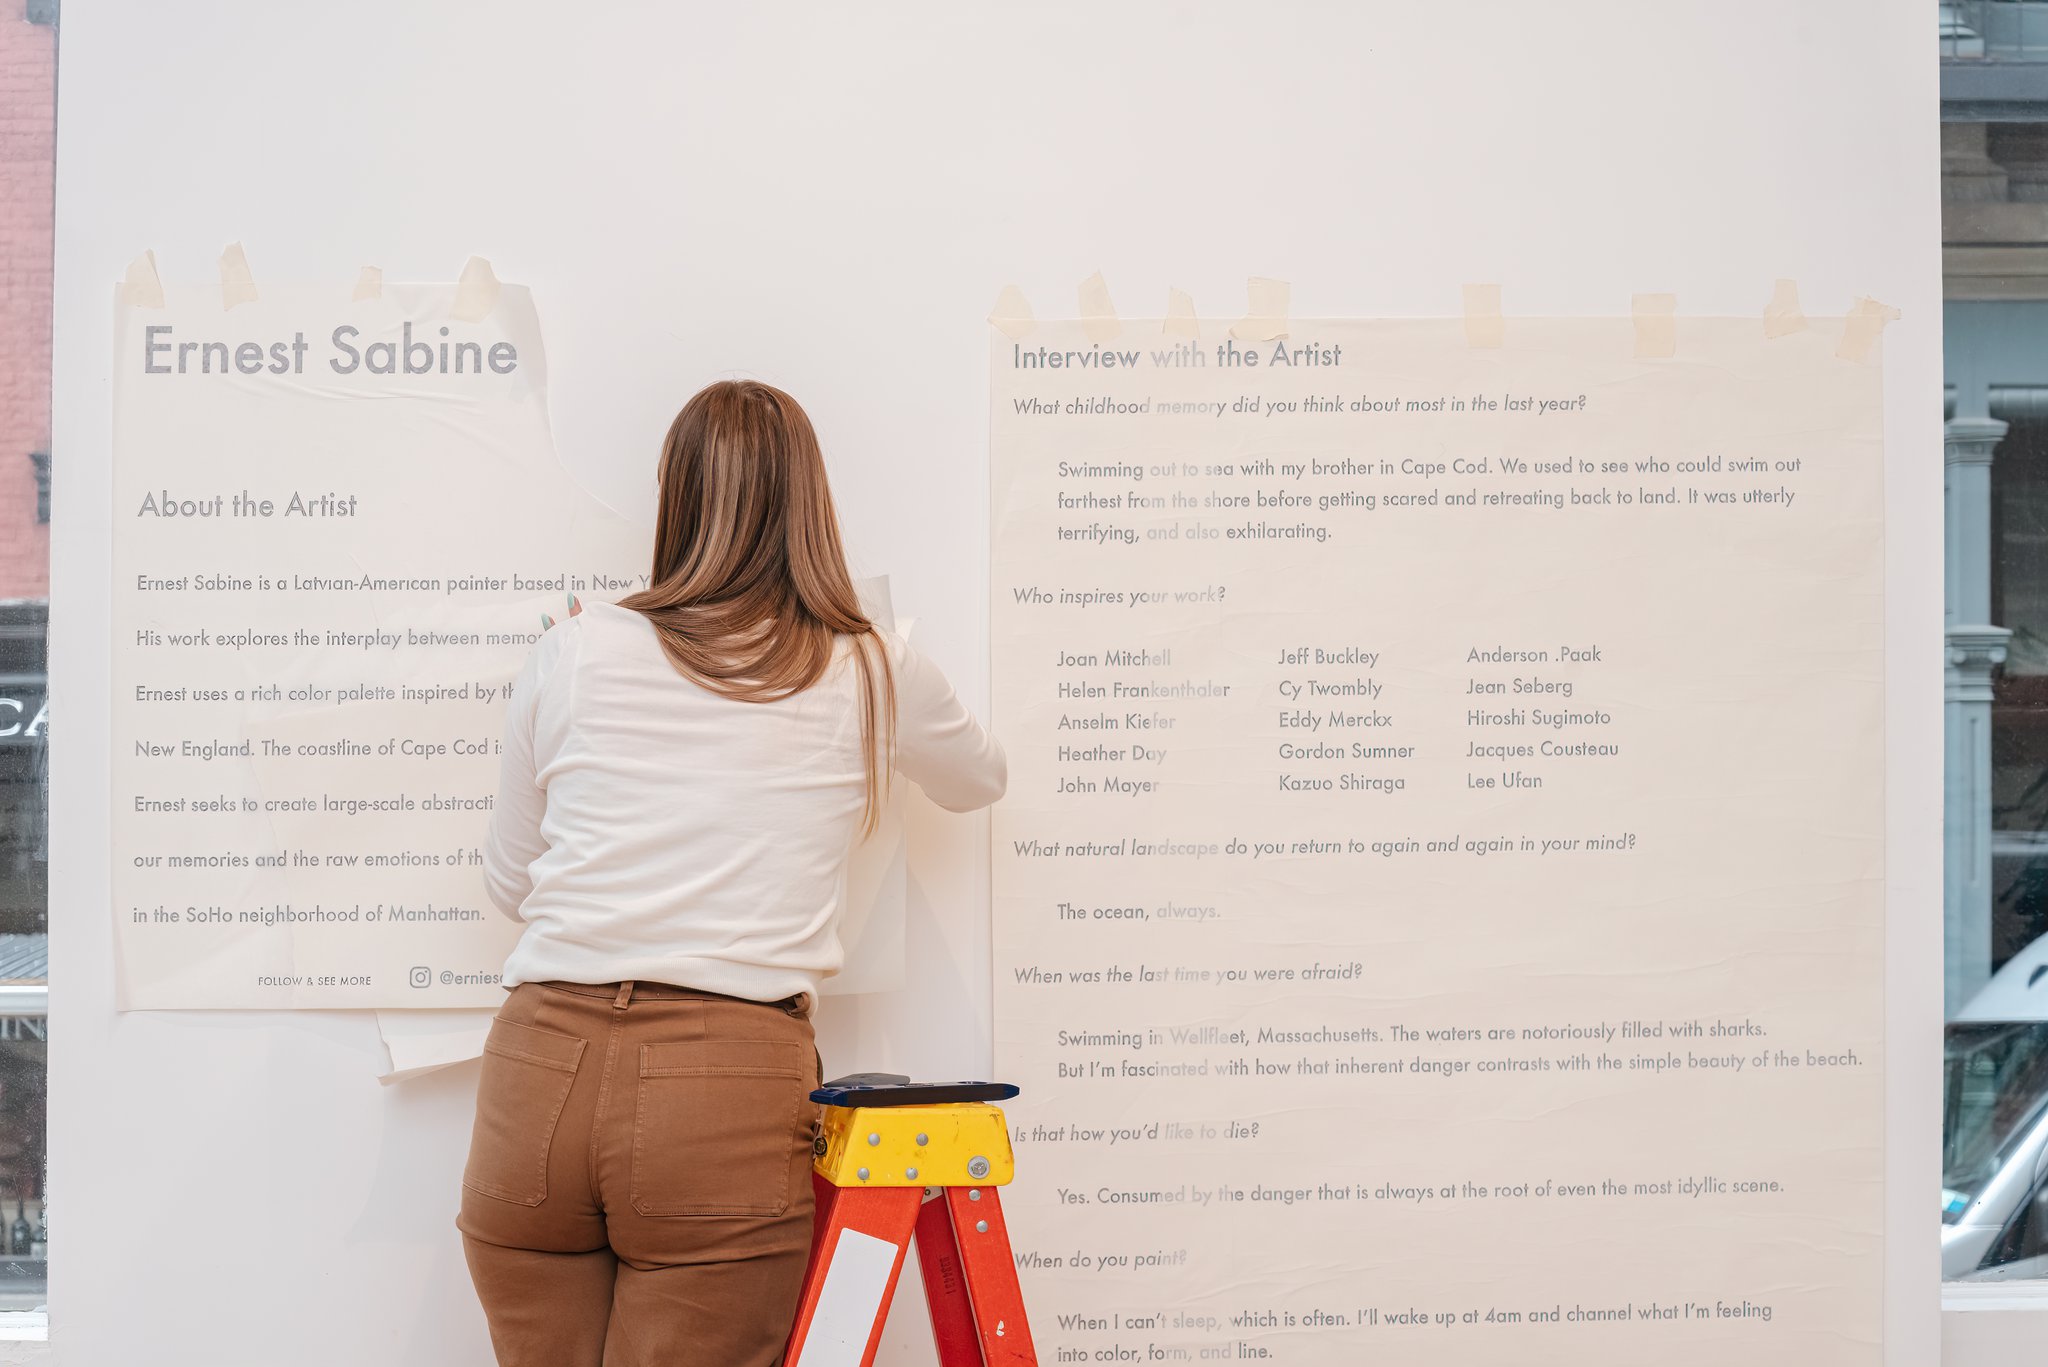 Ernest Sabine
About the Artist
Ernest Sabine is a Latvian-American painter based in New Y
His work explores the interplay between memo
Ernest uses a rich color palette inspired by th
New England. The coastline of Cape Cod is
Ernest seeks to create large-scale abstracti
our memories and the raw emotions of th
in the SoHo neighborhood of Manhattan.
FOLLOW & SEE MORE @ernies
Interview with the Artist
What childhood memory did you think about most in the last year?
Swimming out to sea with my brother in Cape Cod. We used to see who could swim out
farthest from the shore before getting scared and retreating back to land. It was utterly
terrifying, and also exhilarating.
Who inspires your work?
Joan Mitchell Jeff Buckley Anderson .Paak
Helen Frankenthaler Cy Twombly Jean Seberg
Anselm Kiefer Eddy Merckx Hiroshi Sugimoto
Heather Day Gordon Sumner Jacques Cousteau
John Mayer Kazuo Shiraga Lee Ufan
What natural landscape do you return to again and again in your mind?
The ocean, always.
When was the last time you were afraid?
Swimming in Wellfleet, Massachusetts. The waters are notoriously filled with sharks.
But I'm fascinated with how that inherent danger contrasts with the simple beauty of the beach.
Is that how you'd like to die?
Yes. Consumed by the danger that is always at the root of even the most idyllic scene.
When do you paint?
When I can't sleep, which is often. I'll wake up at 4am and channel what I'm feeling
into color, form, and line.